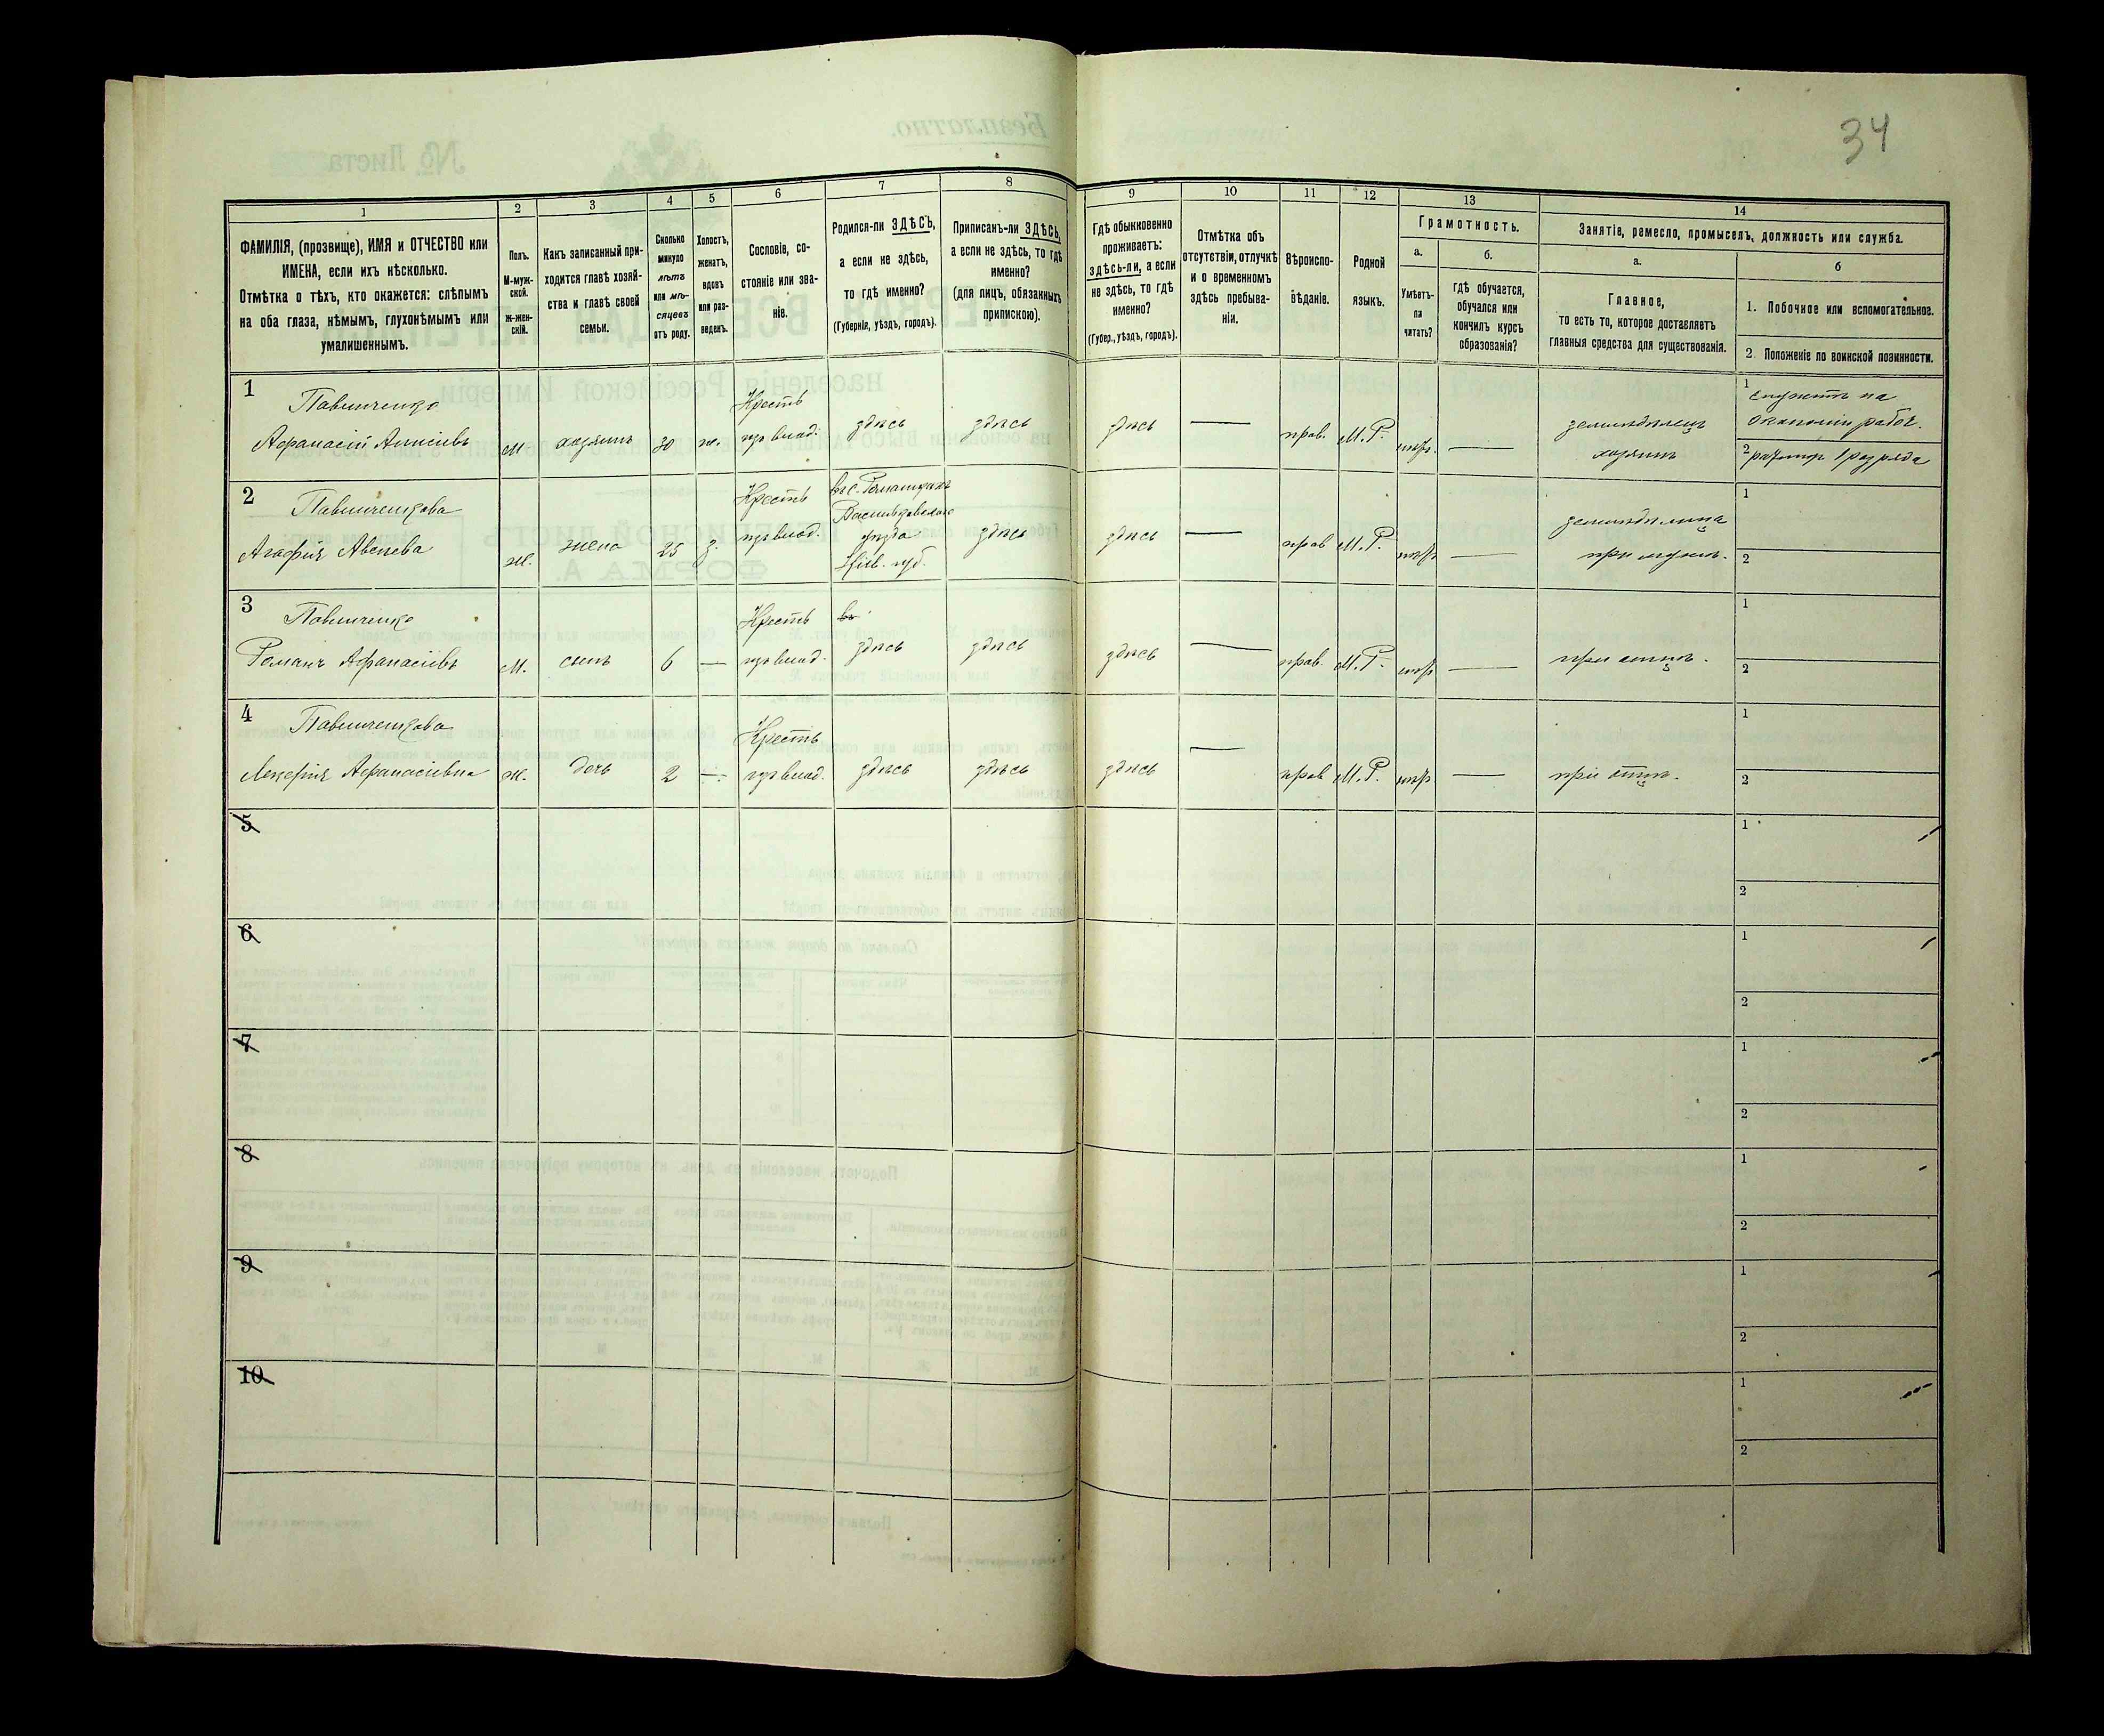 34
1
2
3
4
5
6
7
8
9
10
11
12
13
14
ФАМИЛІЯ, (прозвище), ИМЯ и ОТЧЕСТВО или
ИМЕНА, если ихъ нѣсколько.
Отмѣтка о тѣхъ, кто окажется: слѣпымъ
на оба глаза, нѣмымъ, глухонѣмымъ или
умалишеннымъ.
Полъ.
М-муж-
ской.
Ж-жен-
скій.
Какъ записанный при-
ходится главѣ хозяй-
ства и главѣ своей
семьи.
Сколько
минуло
лѣтъ
или мѣ-
сяцевъ
отъ роду.
Холостъ,
женатъ,
вдовъ
или раз-
веденъ.
Сословіе, со-
стояніе или зва-
ніе.
Родился-ли ЗДѢСЬ,
а если не здѣсь,
то гдѣ именно?
(Губернія, уѣздъ, городъ).
Приписанъ-ли ЗДѢСЬ,
а если не здѣсь, то гдѣ
именно?
(для лицъ, обязанныхъ
припискою).
Гдѣ обыкновенно
проживаетъ:
здѣсь-ли, а если
не здѣсь, то гдѣ
именно?
(Губер., уѣздъ, городъ).
Отмѣтка объ
отсутствіи, отлучкѣ
и о временномъ
здѣсь пребыва-
ніи.
Вѣроиспо-
вѣданіе.
Родной
языкъ.
Грамотность.
а.
Умѣетъ-
ли
читать?
б.
гдѣ обучается,
обучался или
кончилъ курсъ
образованія?
Занятіе, ремесло, промыселъ, должность или служба.
а.
Главное,
то есть то, которое доставляетъ
главныя средства для существованія.
б
1. Побочное или вспомогательное.
2 Положеніе по воинской повинности.
1
Павличенко
Афанасій
М
хозяинъ
30
ж.
Кресть
изъ влад.
здѣсь
здѣсь
здѣсь
—
прав.
М.Р.
негр.
—
земледѣлецъ
хозяинъ
1
на
2 ратникъ 1 разряда
2
Павличенкова
Агафія
ж.
жена
25
з.
Кресть
изъ влад.
въ с.
Васильковскаго
уѣзда
Кіев. губ.
здѣсь
здѣсь
—
прав
М.Р.
негр
—
при мужѣ.
1
2
3
Павличенко
Романъ Афанасіевъ
М.
сынъ
6
—
Кресть
изъ влад.
въ
здѣсь
здѣсь
здѣсь
—
прав.
М.Р.
негр
—
при отцѣ.
1
2
4
Павличенкова
Афанасіевна
ж.
дочь
2
—
Кресть
изъ влад.
здѣсь
здѣсь
здѣсь
—
прав
М.Р.
негр
—
при отцѣ.
1
2
5
1
2
6
1
2
7
1
2
8
1
2
9
1
2
10
1
2